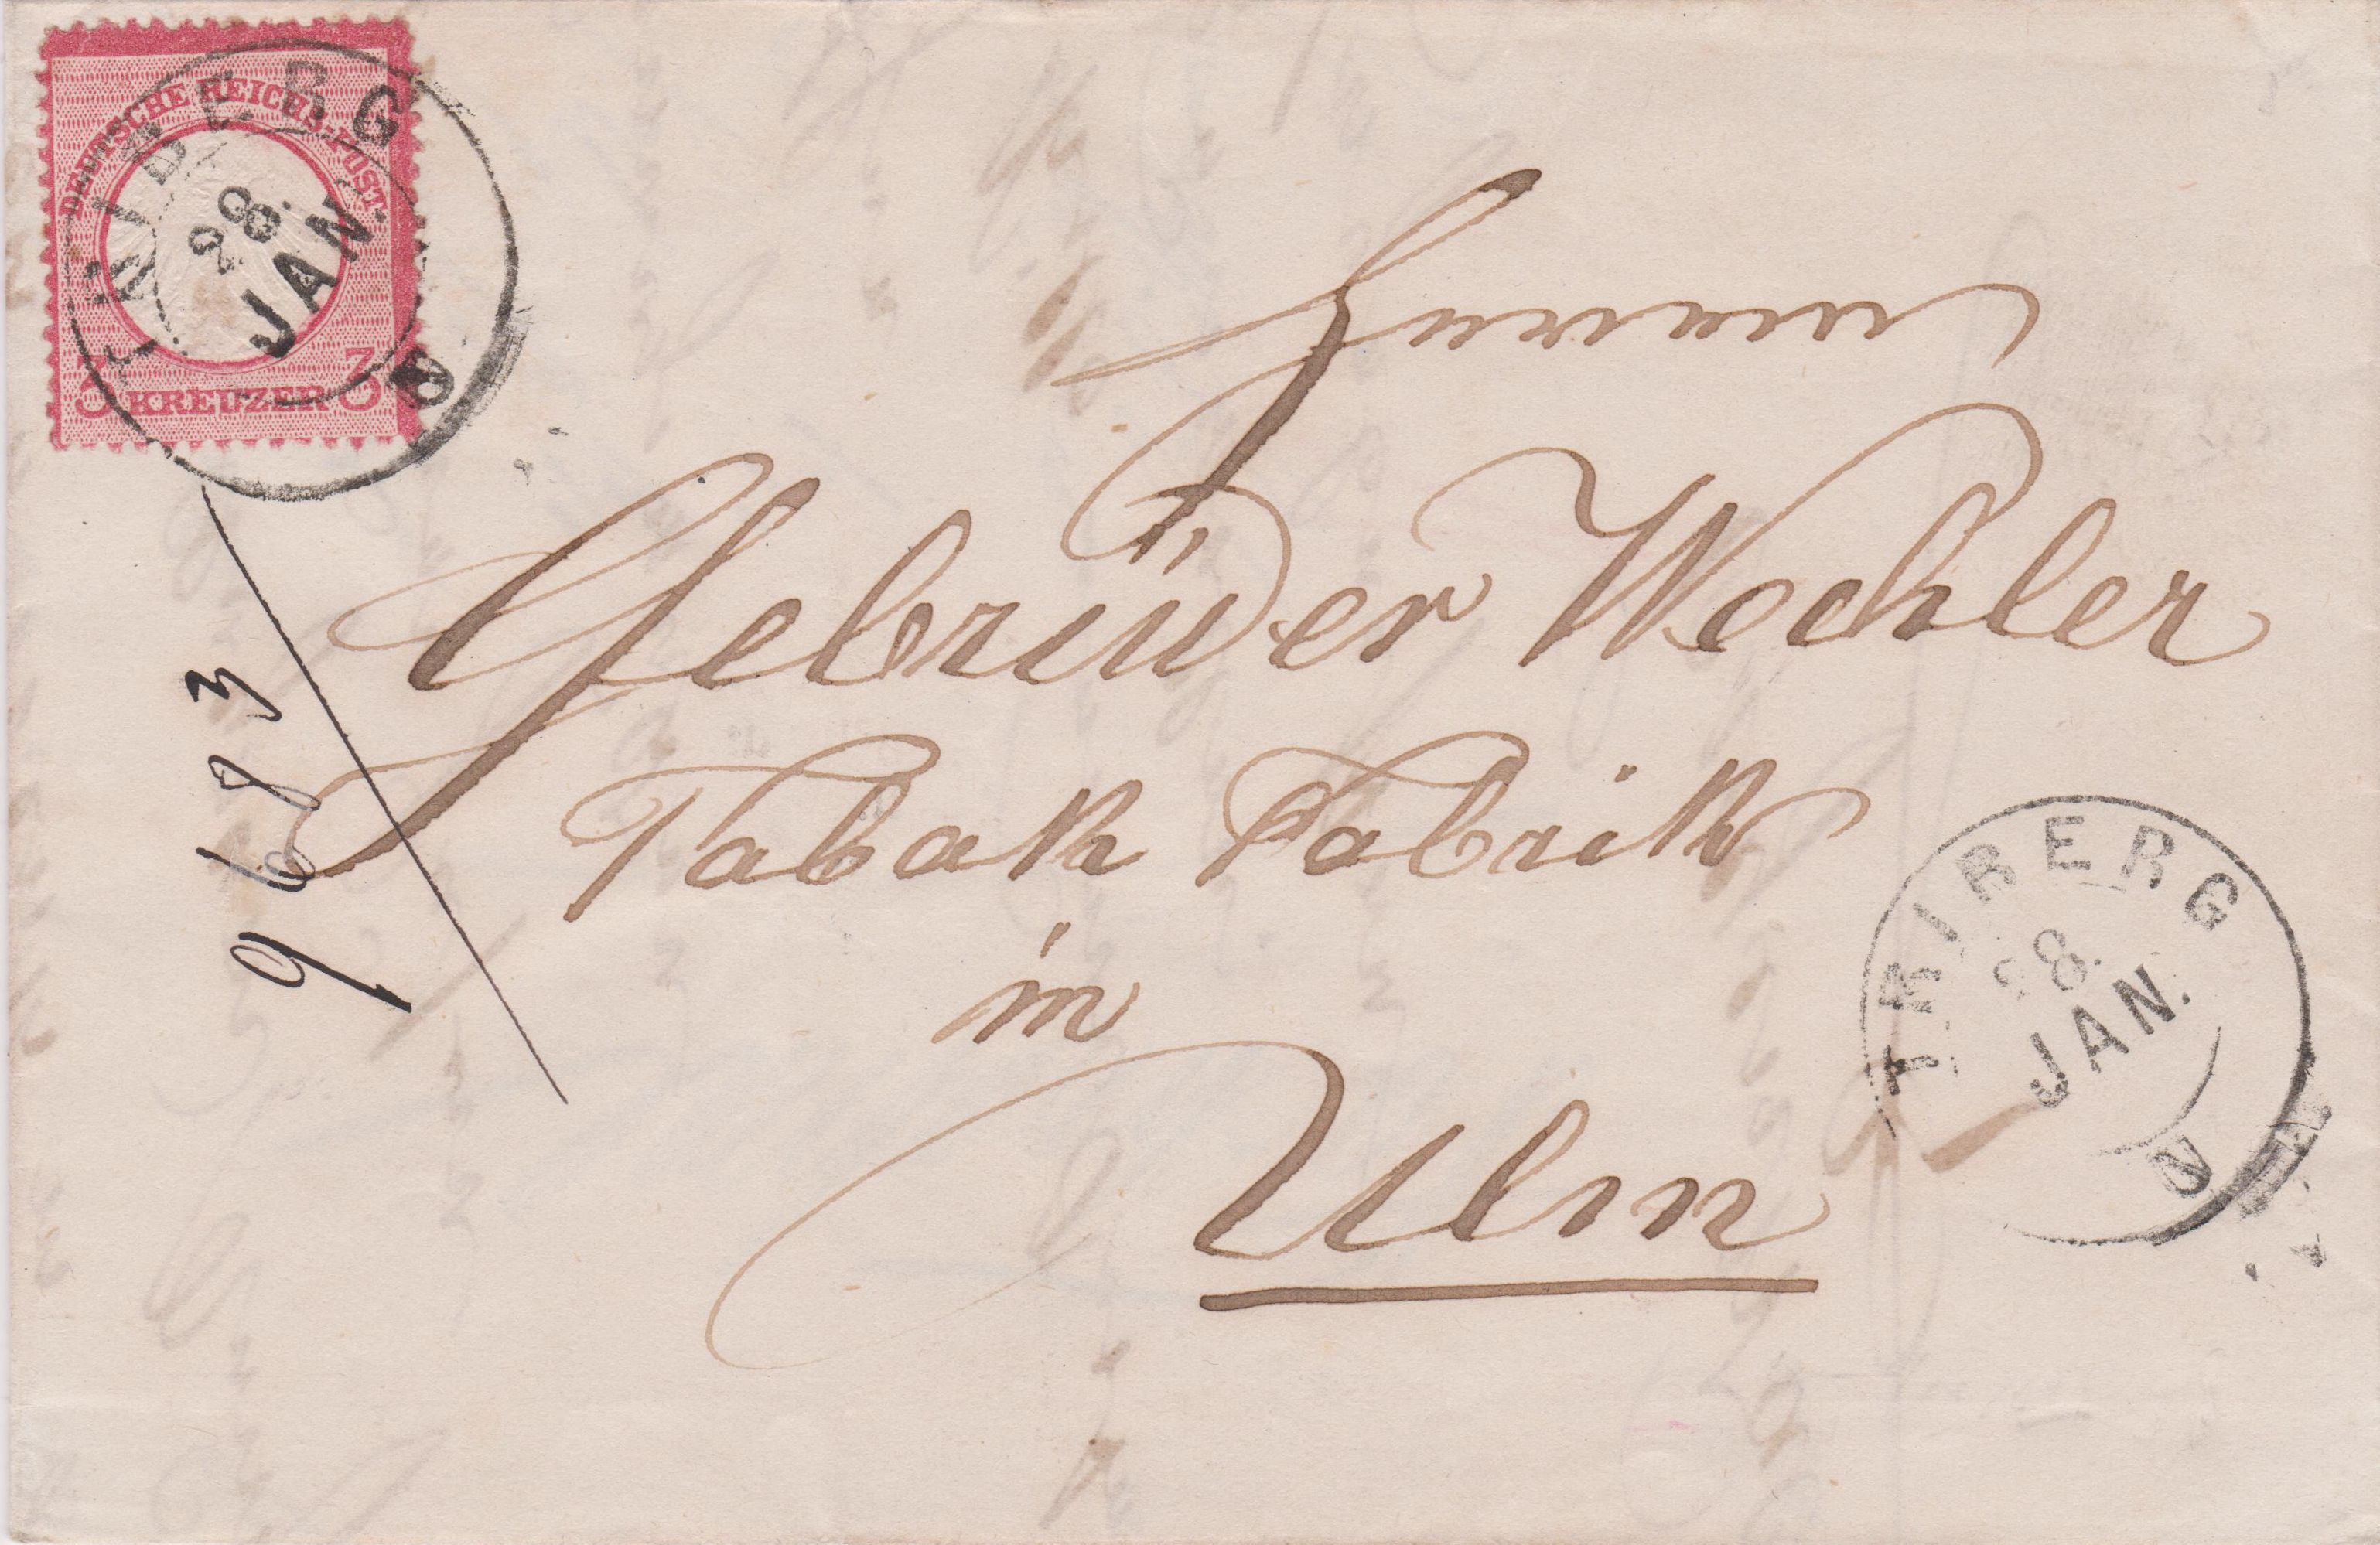 DEUTSCHE REICHS-POST.
3 KREUZER 3
TRIBERG
28.
JAN.
Herren
Gebrüder Wechler
Tabak Fabrik
in
Ulm
TRIBERG
28.
JAN.